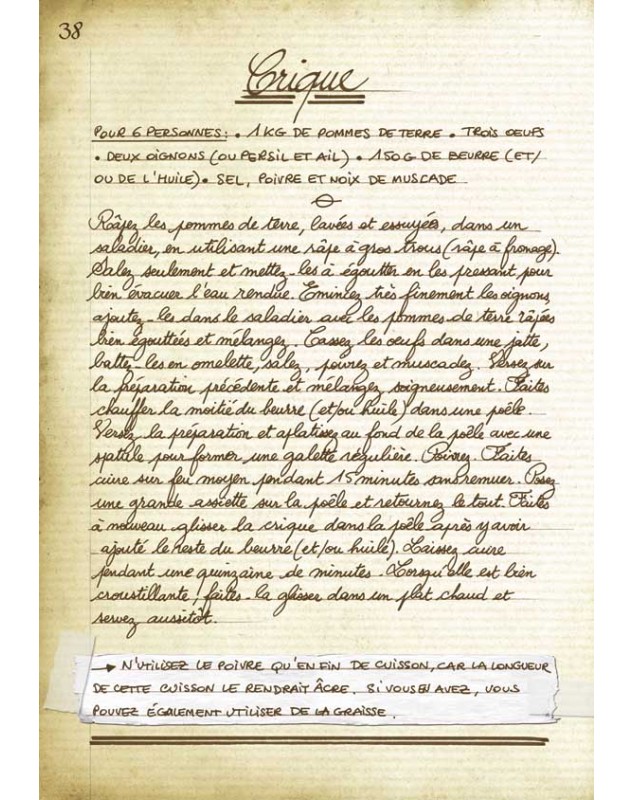 38
Crique
POUR 6 PERSONNES: • 1 KG DE POMMES DE TERRE • TROIS OEUFS
• DEUX OIGNONS (OU PERSIL ET AIL) • 150 G DE BEURRE (ET/
OU DE L'HUILE) • SEL, POIVRE ET NOIX DE MUSCADE
Râpez les pommes de terre, lavées et essuyées, dans un
saladier, en utilisant une râpe à gros trous (râpe à fromage).
Salez seulement et mettez-les à égoutter en les pressant pour
bien évacuer l'eau rendue. Emincez très finement les oignons
ajoutez-les dans le saladier avec les pommes de terre râpées
bien égouttées et mélangez. Cassez les oeufs dans une jatte,
battez-les en omelette, salez, poivrez et muscadez. Versez sur
la préparation précédente et mélangez soigneusement. Faites
chauffer la moitié du beurre (et/ou huile) dans une poêle.
Versez la préparation et aplatissez au fond de la poêle avec une
spatule pour former une galette régulière. Poivrez. Faites
cuire sur feu moyen pendant 15 minutes sans remuer. Posez
une grande assiette sur la poêle et retournez le tout. Faites
à nouveau glisser la crique dans la poêle après y avoir
ajouté le reste du beurre (et/ou huile). Laissez cuire
pendant une quinzaine de minutes. Lorsqu'elle est bien
croustillante, faites-la glisser dans un plat chaud et
servez aussitôt.
→ N'UTILISEZ LE POIVRE QU'EN FIN DE CUISSON, CAR LA LONGUEUR
DE CETTE CUISSON LE RENDRAIT ÂCRE. SI VOUS EN AVEZ, VOUS
POUVEZ ÉGALEMENT UTILISER DE LA GRAISSE.